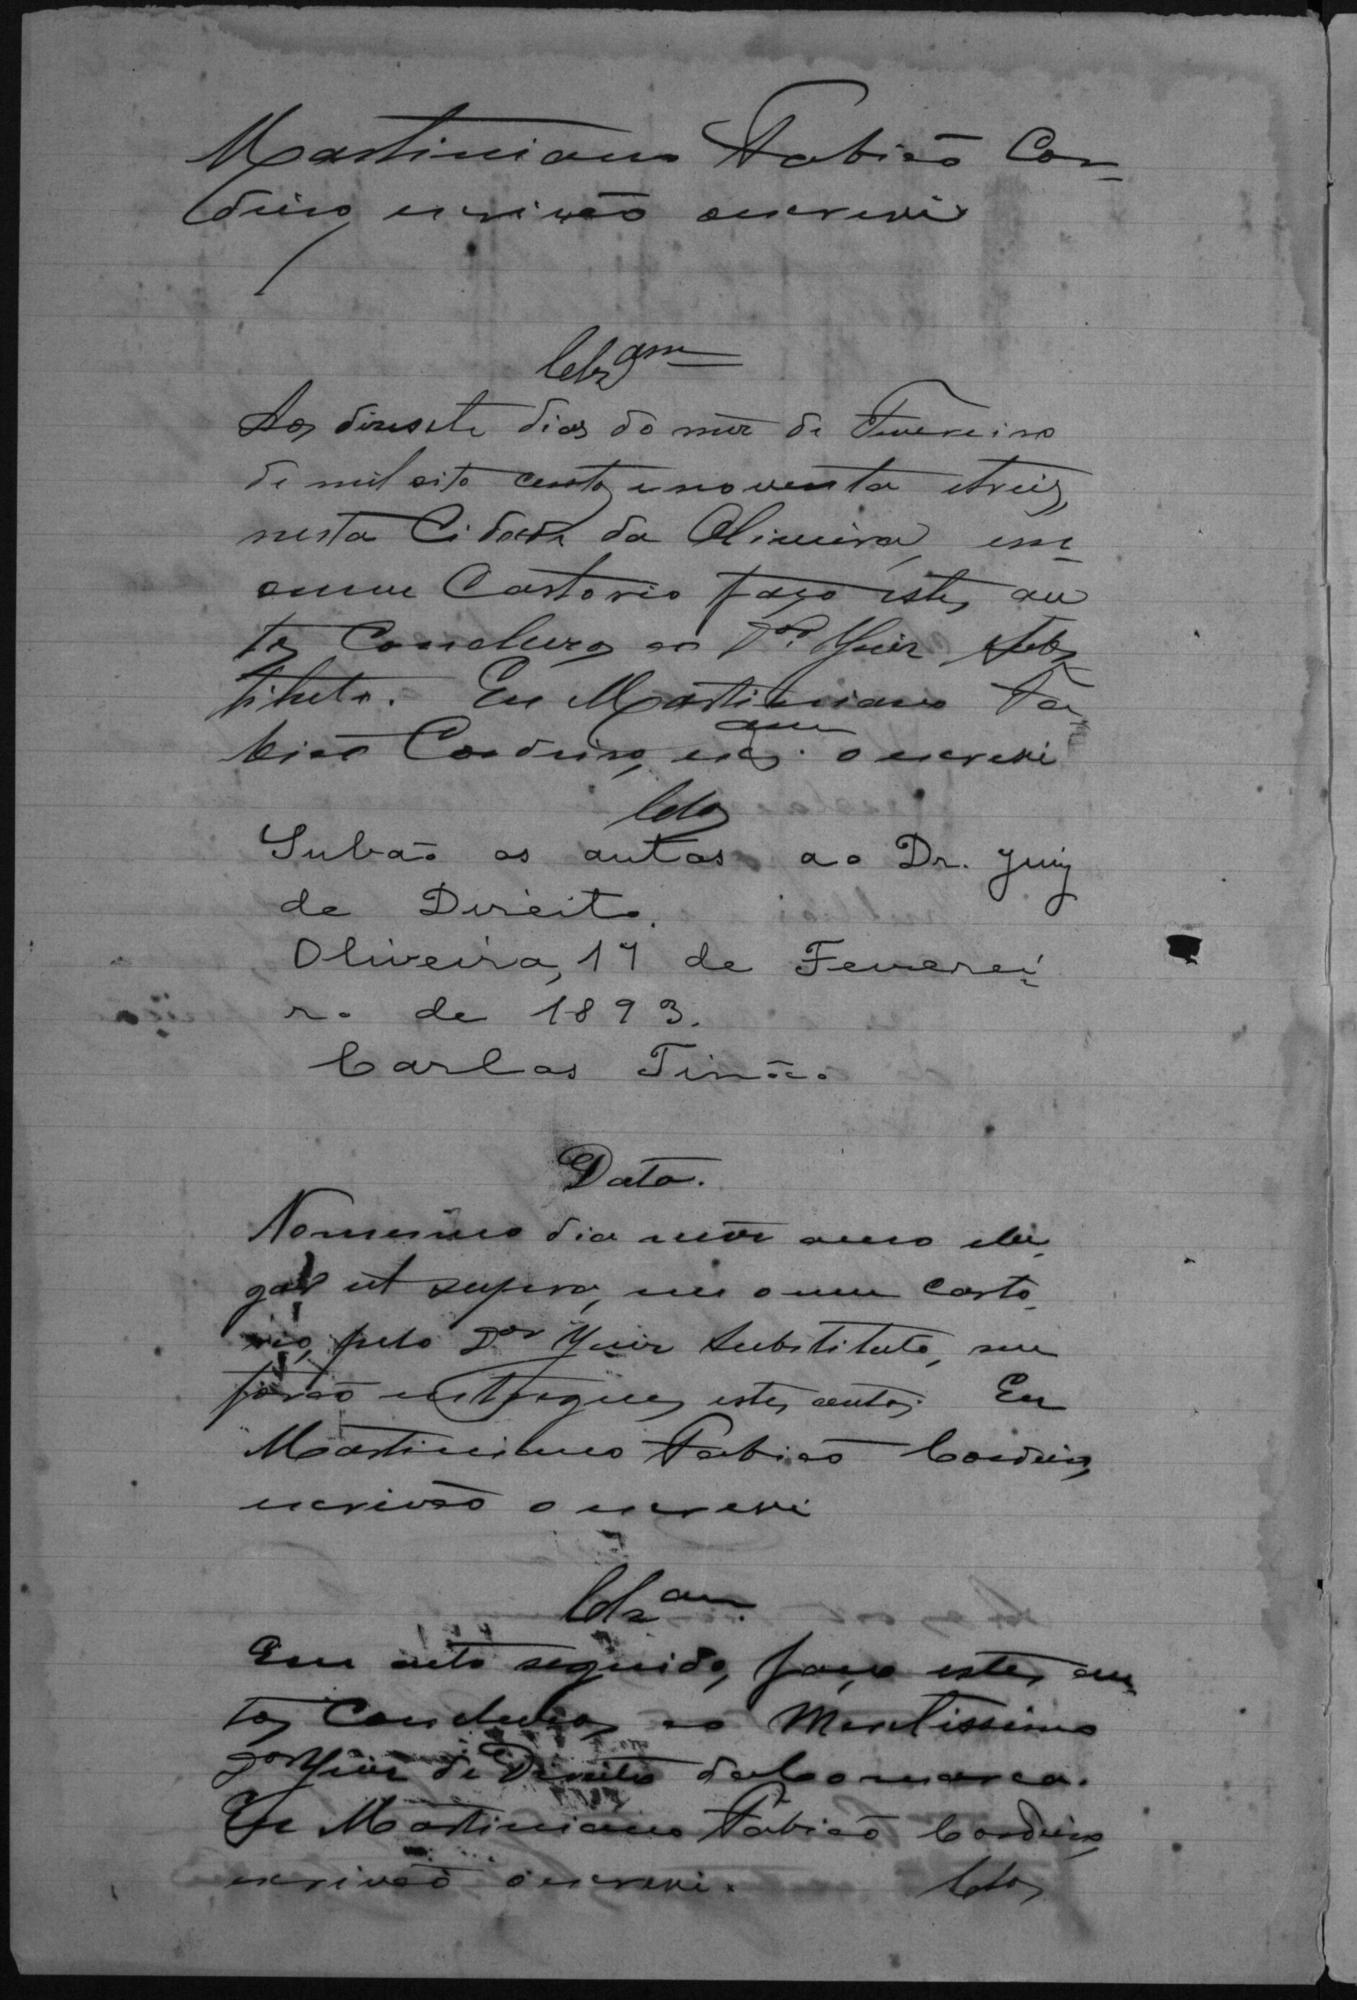 Martiniano Fabião Cor-
deiro, escrivão o escrevi
Clsam
Aos dezesete dias do mez de Fevereiro
de mil oito centos e noventa e treis,
nesta Cidade da Oliveira, em
o meu Cartorio faço estes au
tos Conclusos ao Dor Juiz Subs
tituto. Eu Martiniano Fa-
bião Cordeiro, escam o escrevi
Clos
Subão os autos ao Dr. Juiz
de Direito.
Oliveira, 17 de Feverei-
ro de 1893.
Carlos Tinôco
Data.
No mesmo dia mez anno e lu-
gar ut supra, em o meu carto-
rio, pelo Dor Juiz Substituto, me
forão entregues estes autos. Eu
Martiniano Fabião Cordeiro,
escrivão o escrevi
Clsam
Em acto seguido, faço estes au-
tos Conclusos ao Meritissimo
Dor Juiz de Direito da Comarca.
Eu Martiniano Fabião Cordeiro
escrivão o escrevi. Clos